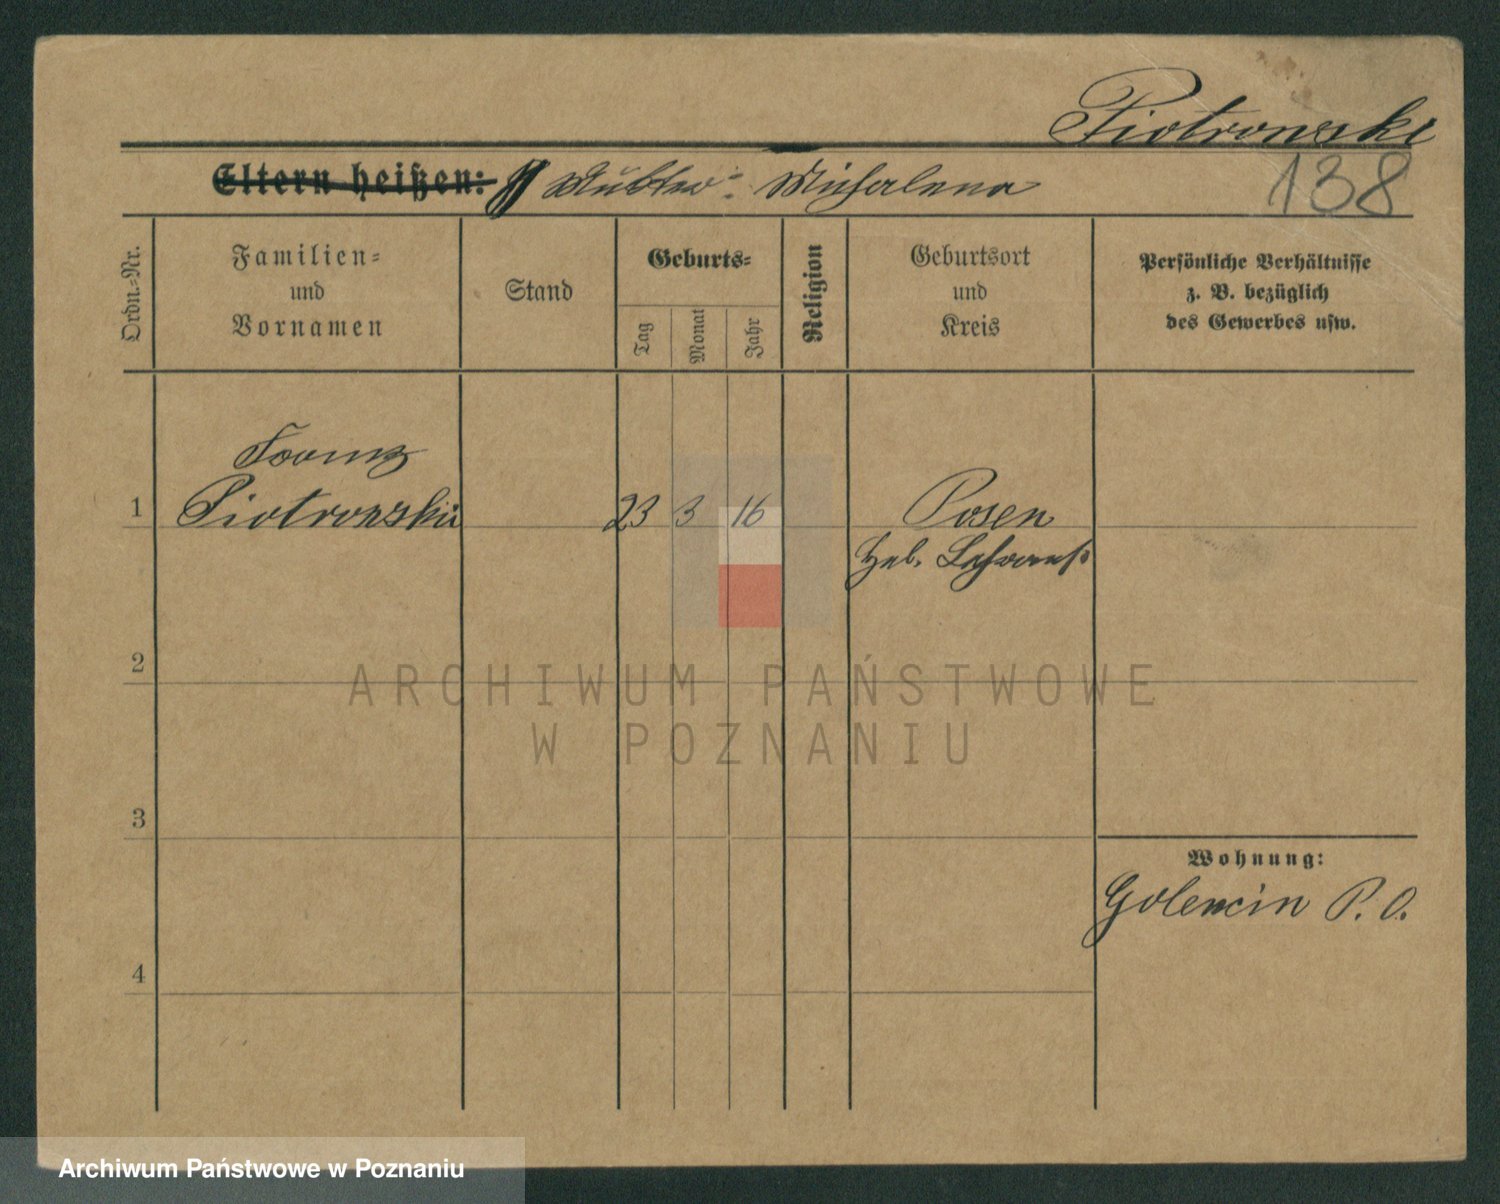 Piotrowski
138
Eltern heißen: Mutter: Michalena
Ordn.-Nr.
Familien-
und
Vornamen
Stand
Geburts-
Tag
Monat
Jahr
Religion
Geburtsort
und
Kreis
Persönliche Verhältnisse
z. B. bezüglich
des Gewerbes usw.
Franz
1 Piotrowski 23 3 16 Posen
Heb.
2
ARCHIWUM PAŃSTWOWE
W POZNANIU
3
Wohnung:
Golencin P. O.
4
Archiwum Państwowe w Poznaniu